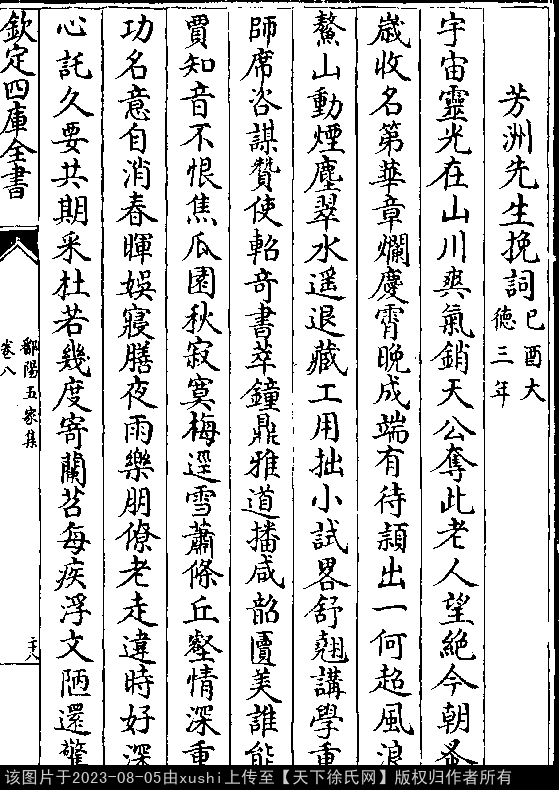 芳洲先生挽詞己酉大德三年
宇宙靈光在山川爽氣銷天公奪此老人望絶今朝蚤
歲收名第華章爛慶霄晩成端有待穎出一何超風浪
鰲山動煙塵翠水遥退藏工用拙小試畧舒翹講學重
師席咨謀贊使軺奇書萃鐘鼎雅道播咸韶匵美誰能
賈知音不恨焦瓜園秋寂寞梅逕雪蕭條丘壑情深重
功名意自消春暉娱寢膳夜雨樂朋僚老走違時好深
心託久要共期采杜若幾度寄蘭苕每疾浮文陋還驚
欽定四庫全書
鄱陽五家集
卷八
二十八
该图片于2023-08-05由xushi上传至【天下徐氏网】版权归作者所有